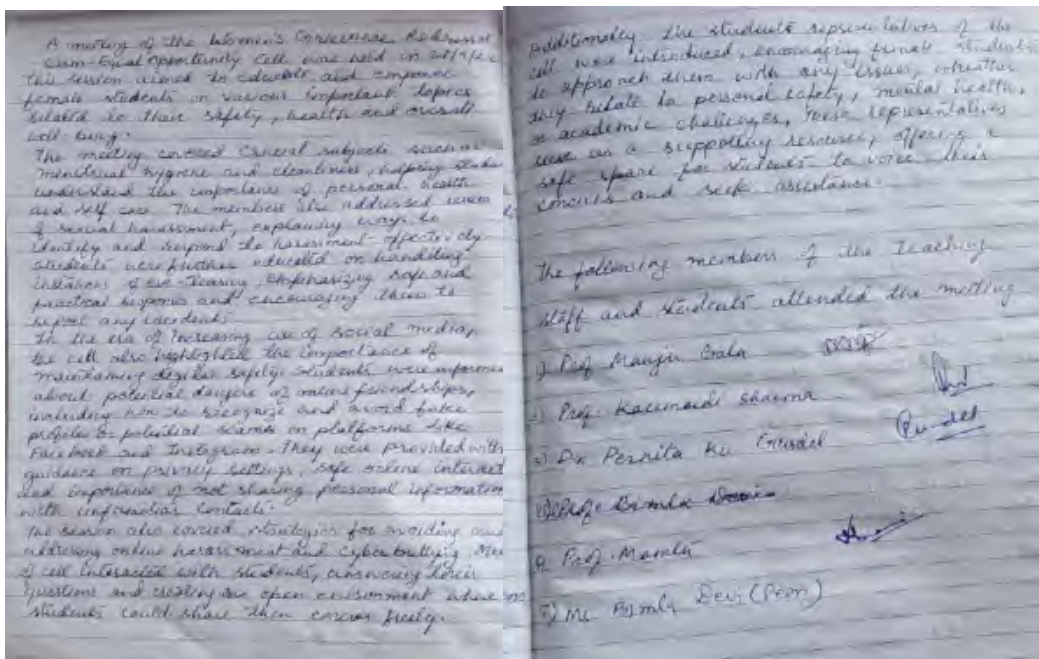 A meeting of the Women's Grievance Redressal
Cum-Equal Opportunity Cell was held on
this session aimed to educate and empower
female students on various important topics
related to their safety, health and overall
well-being.
The meeting covered Crucial subjects such as
menstrual hygiene and cleanliness, helping
understand the importance of personal health
and self care. The members also addressed issues
of sexual harassment, explaining ways to
identify and respond to harassment effectively.
students were further educated on handling
instances of eve-teasing, emphasizing safe and
practical and encouraging them to
report any incidents
In the era of increasing use of social media,
the cell also highlighted the importance of
maintaining digital safety. Students were
about potential dangers of online friendships,
including how to recognize and avoid fake
profiles & potential scams on platforms like
Facebook and Instagram. They were provided with
guidance on privacy settings, safe online
and importance of not sharing personal information
with unfamiliar contacts.
The session also covered strategies for avoiding and
addressing online harassment and cyberbullying.
of cell interacted with students, answering their
questions and creating an open environment where
students could share their concerns freely.
Additionally the students representatives of the
cell were introduced, encouraging female students
to approach them with any issues, wheather
they relate to personal safety, mental health,
or academic challenges, these representatives
as a supporting resource, offering a
safe space for students to voice their
concerns and seek assistance.
The following members of the Teaching
staff and students attended the meeting
1) Prof Manju
2) Prof. Sharma
3) Dr. Ku
Bimla
4. Prof. Mamta
5) Ms Bimla Devi (Peon)